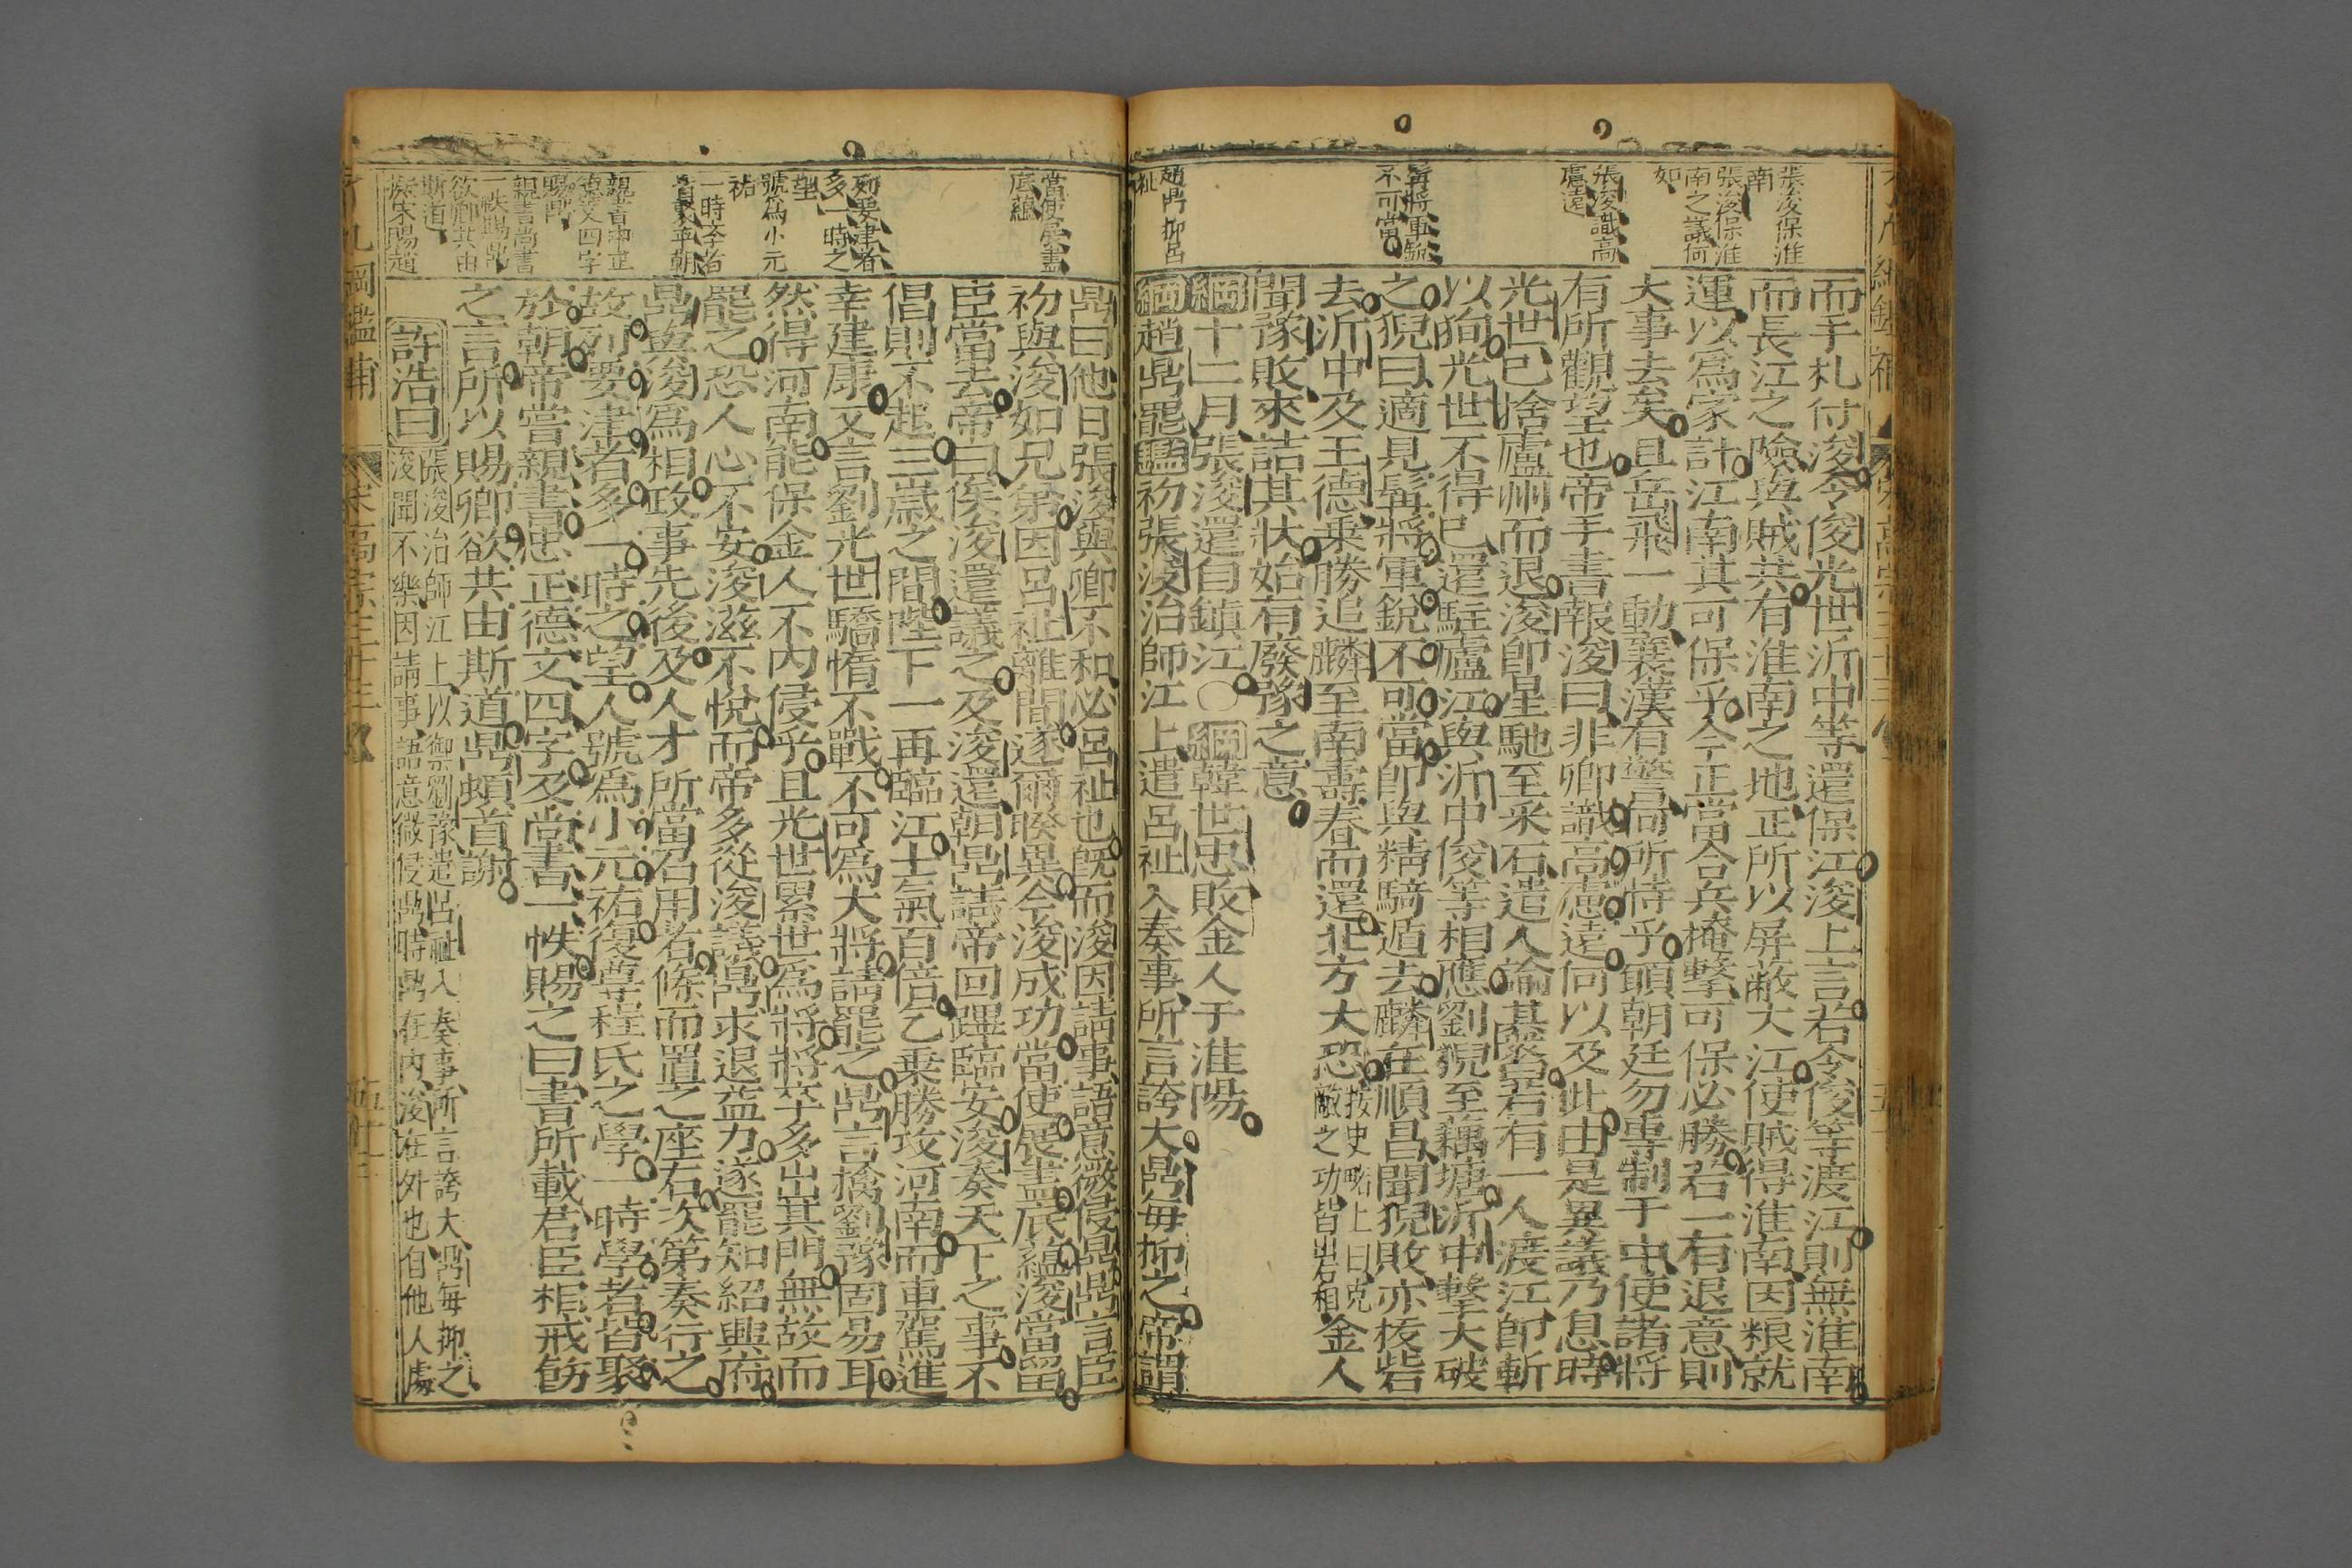 張浚保淮
南
張浚保淮
南之議何
如
張浚識高
慮遠
髯將軍銳
不可當
趙鼎抑呂
祉
而手札付浚令俊光世沂中等還保江浚上言若令俊等渡江則無淮南
而長江之險與賊共有淮南之地正所以屏蔽大江使賊得淮南因粮就
運以爲家計江南其可保乎今正當合兵掩擊可保必勝若一有退意則
大事去矣且岳飛一動襄漢有警何所恃乎願朝廷勿專制于中使諸將
有所觀望也帝手書報浚曰非卿識高慮遠何以及此由是異議乃息時
光世已捨廬州而退浚卽星馳至采石遣人諭其衆若有一人渡江卽斬
以狥光世不得已還駐廬江與沂中俊等相應劉猊至藕塘沂中擊大破
之猊曰適見髯將軍銳不可當卽與精騎遁去麟在順昌聞猊敗亦拔砦
去沂中及王德乗勝追麟至南壽春而還北方大恐按史略上曰克敵之功皆出右相金人
聞豫敗來詰其狀始有廢豫之意
綱十二月張浚還自鎮江〇綱韓世忠敗金人于淮陽
綱趙鼎罷鑑初張浚治師江上遣呂祉入奏事所言誇大鼎每抑之帝謂
當使展盡
底蘊
列要津者
多一時之
望
號爲小元
祐
一時學者
皆聚于朝
親書忠正
德文四字
賜鼎
親書尚書
一帙賜鼎
欲卿共由
斯道
擬宋賜趙
鼎曰他日張浚與卿不和必呂祉也旣而浚因請事語意微侵鼎鼎言臣
初與浚如兄弟因呂祉離間遂爾睽異今浚成功當使展盡底蘊浚當留
臣當去帝曰俟浚還議之及浚還朝鼎請帝回蹕臨安浚奏天下之事不
倡則不起三歲之間陛下一再臨江士氣百倍乞乗勝攻河南而車駕進
幸建康又言劉光世驕惰不戰不可爲大將請罷之鼎言擒劉豫固易耳
然得河南能保金人不內侵乎且光世累世爲將將卒多出其門無故而
罷之恐人心不安浚滋不悅而帝多從浚議鼎求退益力遂罷知紹興府
鼎與浚爲相政事先後及人才所當召用者條而置之座右次第奏行之
故列要津者多一時之望人號爲小元祐復尊程氏之學一時學者皆聚
於朝帝嘗親書忠正德文四字及尚書一帙賜之曰書所載君臣相戒飭
之言所以賜卿欲共由斯道鼎頓首謝
許浩曰張浚治師江上以禦劉豫遣呂祉入奏事所言誇大鼎每抑之
浚聞不樂因請事語意微侵鼎時鼎在內浚在外也自他人處